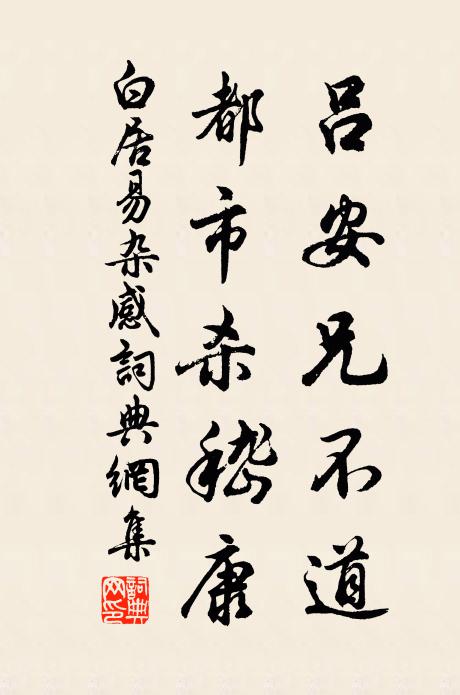 吕安兄不道
都市杀嵇康
白居易杂感詞典網集
詞典网印